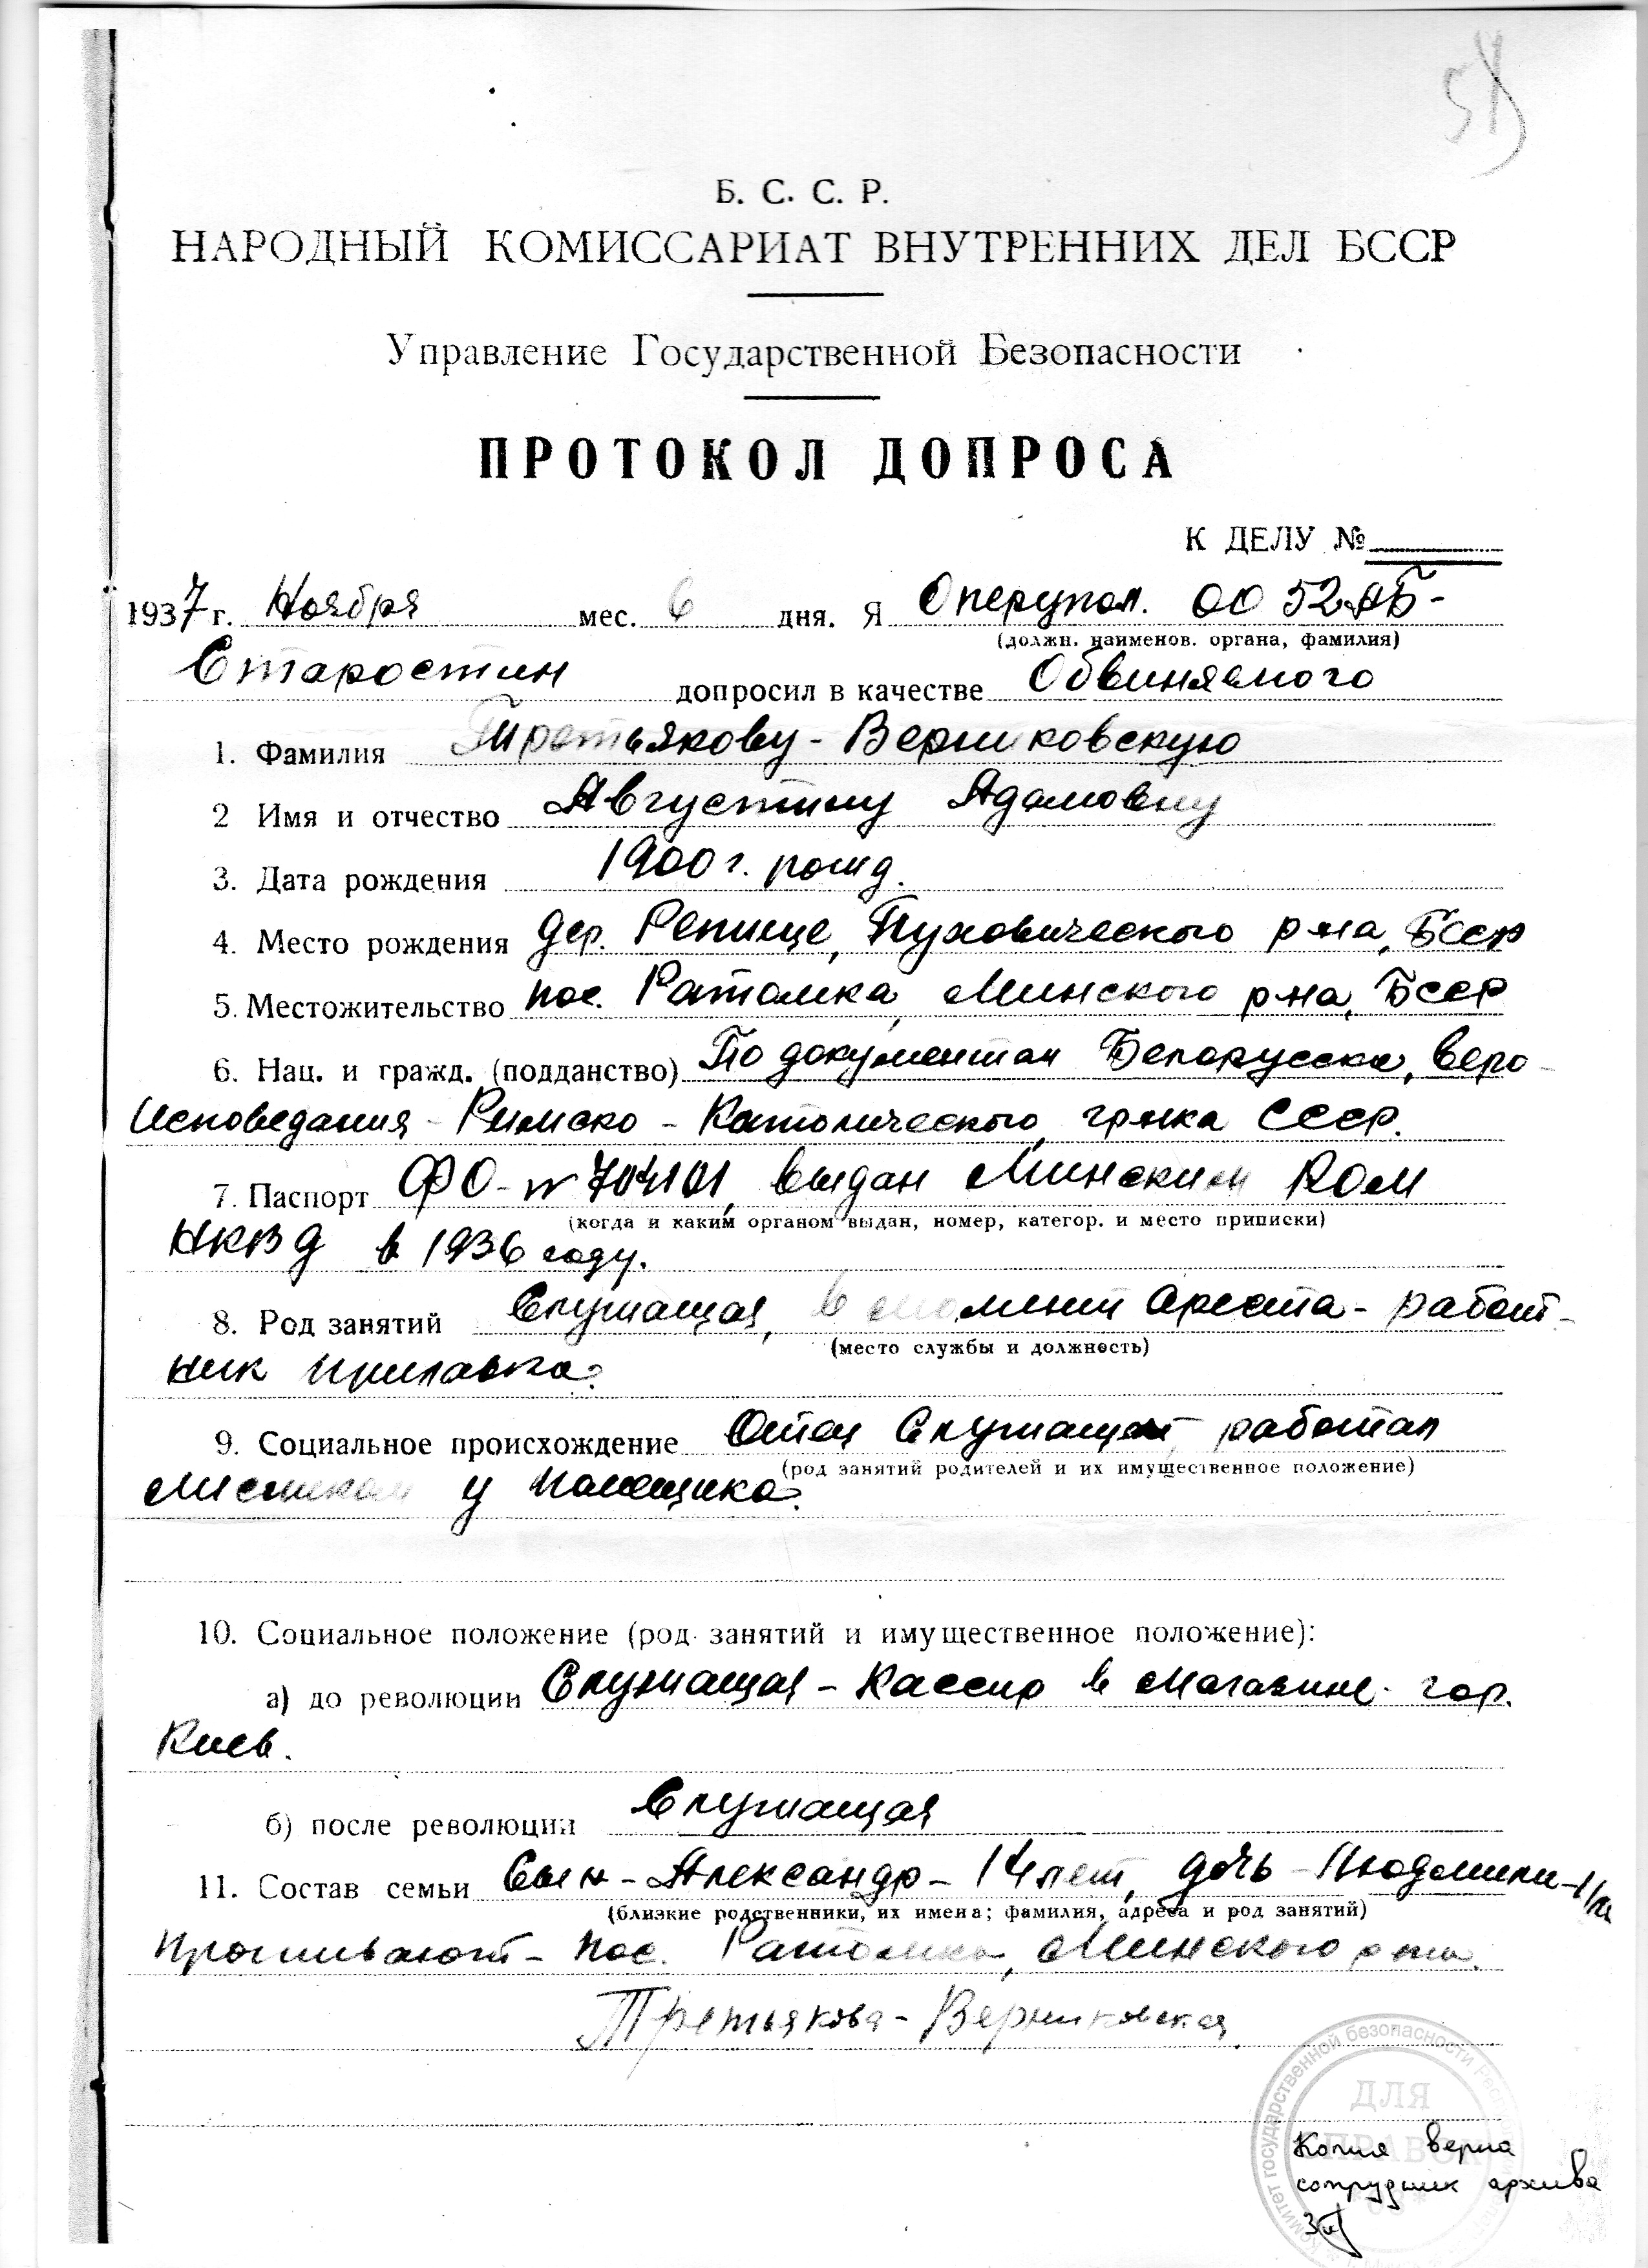 Б. С. С. Р.
НАРОДНЫЙ КОМИССАРИАТ ВНУТРЕННИХ ДЕЛ БССР
Управление Государственной Безопасности
ПРОТОКОЛ ДОПРОСА
К ДЕЛУ №
1937 г. Ноября мес. 6 дня. Я Оперупол. ОО 52 АБ-
(должн. наименов. органа, фамилия)
Старостин допросил в качестве Обвиняемого
1. Фамилия Третьякову-Верниковскую
2 Имя и отчество Августину Адамовну
3. Дата рождения 1900 г. рожд.
4. Место рождения дер. Репище, Пуховического р-на, БССР
5. Местожительство пос. Ратомка, Минского р-на, БССР
6. Нац. и гражд. (подданство) По документам Белорусска, веро-
исповедания - Римско - Католического, гр-нка СССР.
7. Паспорт ФО-№ 704101, выдан Минским РОМ
(когда и каким органом выдан, номер, категор. и место приписки)
НКВД в 1936 году.
8. Род занятий Служащая, в момент ареста - работ-
(место службы и должность)
ник прилавка.
9. Социальное происхождение Отец Служащий, работал
(род занятий родителей и их имущественное положение)
лесником у помещика.
10. Социальное положение (род занятий и имущественное положение):
а) до революции Служащая - Кассир в магазине гор.
Киев.
б) после революции Служащая
11. Состав семьи Сын - Александр - 14 лет, дочь - Людмила -
(близкие родственники, их имена; фамилия, адреса и род занятий)
Проживают - пос. Ратомка, Минского р-на.
Третьякова-Верниковская
Комитет государственной безопасности
ДЛЯ
СПРАВОК
Копия верна
сотрудник архива